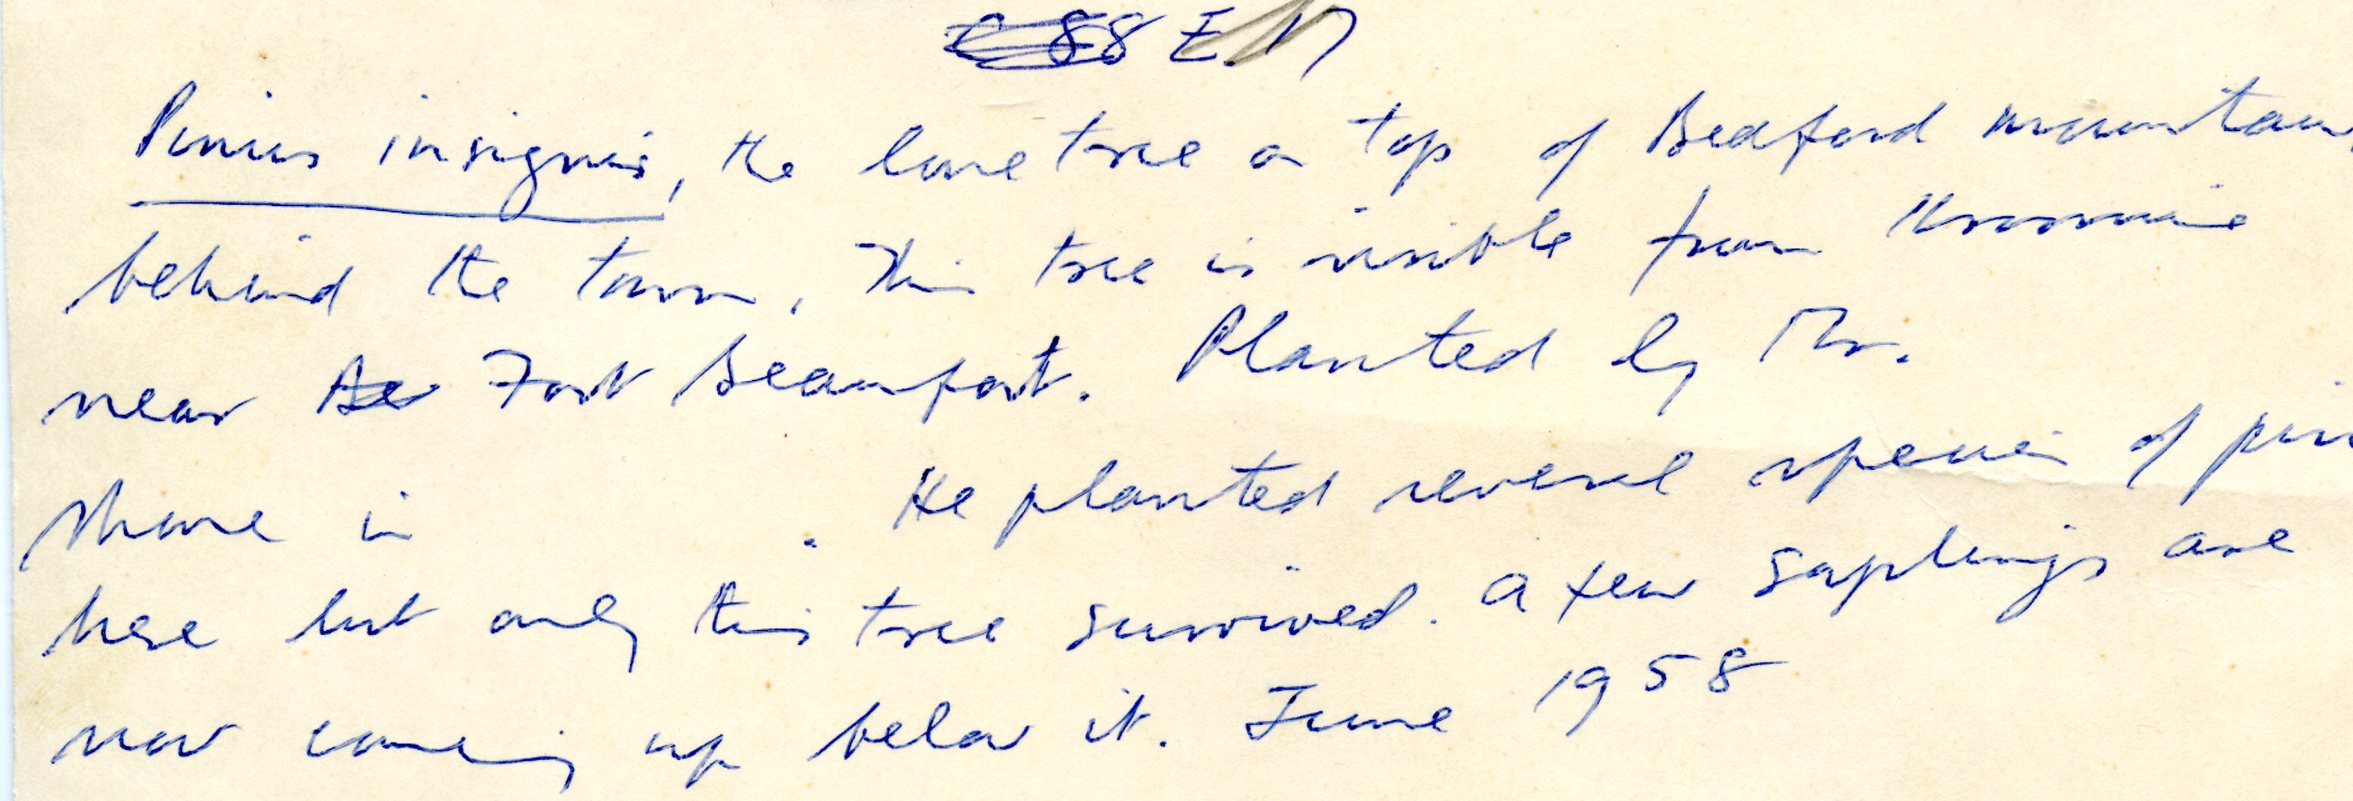 88 E.M
Pinus insignis, the lone tree on top of Bedford mountain,
behind the town. This tree is visible from Kroomie
near Fort Beaufort. Planted by Mr.
Shone in . He planted several species of
here but only this tree survived. A few saplings are
now coming up below it. June 1958